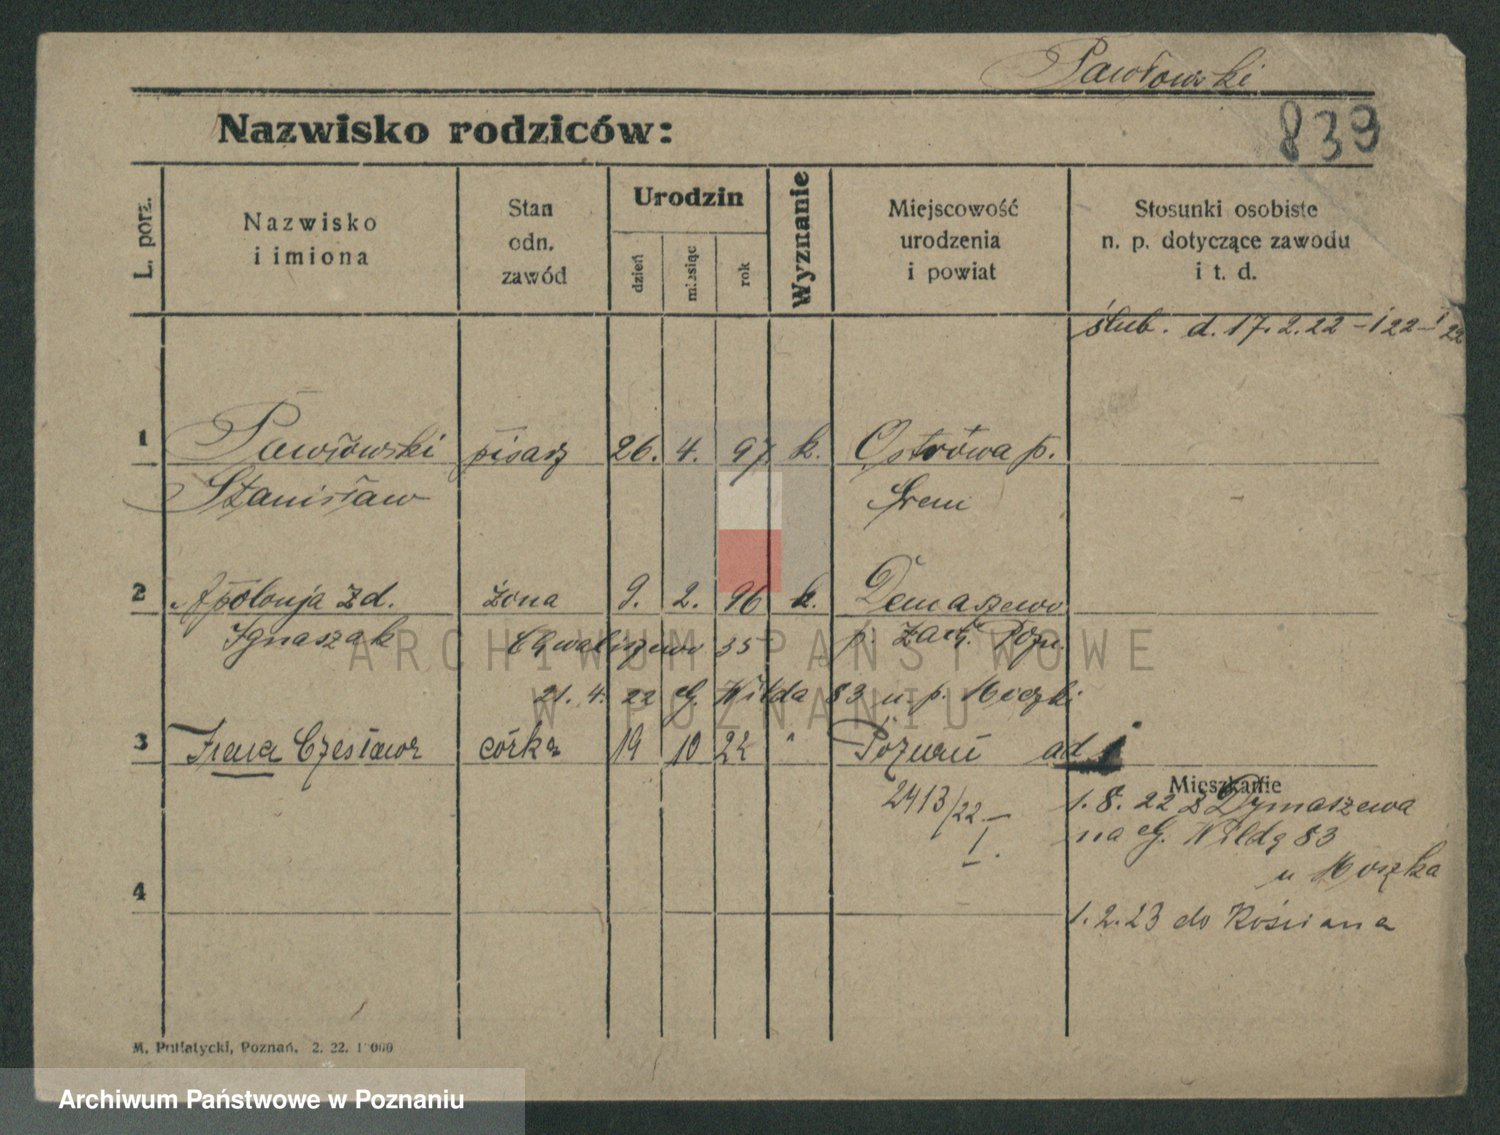 Pawłowski
Nazwisko rodziców:
839
L. porz.
Nazwisko
i imiona
Stan
odn.
zawód
Urodzin
dzień
miesiąc
rok
Wyznanie
Miejscowość
urodzenia
i powiat
Stosunki osobiste
n. p. dotyczące zawodu
i t. d.
ślub. d. 17.2.22 – 122 –
1 Pawłowski pisarz 26. 4. 97 k. Ostrówa p.
Stanisław Śrem
2 Apolonja zd. żona 9. 2. 96 k. Demaszewo
Ignaszak Chwaliszewo 35 p. Zach. Pozn.
21. 4. 22 Wilda 83 u p.
3 Irena Czesława córka 19 10 22 " Poznań ad 1
2413/22 –
I.
Mieszkanie
1. 8. 22 z Dymaszewa
na Wildę 83
u Moszka
4
1.2.23 do Kościana
M. Putiatycki, Poznań. 2. 22.
ARCHIWUM PAŃSTWOWE
W POZNANIU
Archiwum Państwowe w Poznaniu